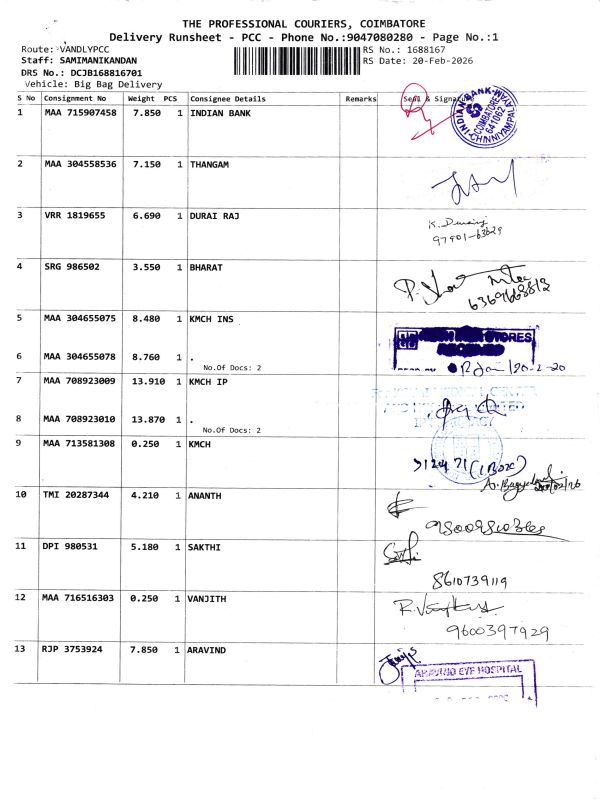 THE PROFESSIONAL COURIERS, COIMBATORE
Delivery Runsheet - PCC - Phone No.:9047080280 - Page No.:1
Route: VANDLYPCC RS No.: 1688167
Staff: SAMIMANIKANDAN RS Date: 20-Feb-2026
DRS No.: DCJB168816701
Vehicle: Big Bag Delivery
S No Consignment No Weight PCS Consignee Details Remarks Seal & Signature
1 MAA 715907458 7.850 1 INDIAN BANK
INDIAN BANK COIMBATORE 641062 CHINNIYAMPALAYAM
2 MAA 304558536 7.150 1 THANGAM
3 VRR 1819655 6.690 1 DURAI RAJ
K. Durairaj
97901-63629
4 SRG 986502 3.550 1 BHARAT
6369668813
5 MAA 304655075 8.480 1 KMCH INS
STORES
RECEIVED
20-2-20
6 MAA 304655078 8.760 1 .
No.Of Docs: 2
7 MAA 708923009 13.910 1 KMCH IP
8 MAA 708923010 13.870 1 .
No.Of Docs: 2
9 MAA 713581308 0.250 1 KMCH
(1 Box)
10 TMI 20287344 4.210 1 ANANTH
11 DPI 980531 5.180 1 SAKTHI
8610739119
12 MAA 716516303 0.250 1 VANJITH
9600397929
13 RJP 3753924 7.850 1 ARAVIND
ARAVIND EYE HOSPITAL